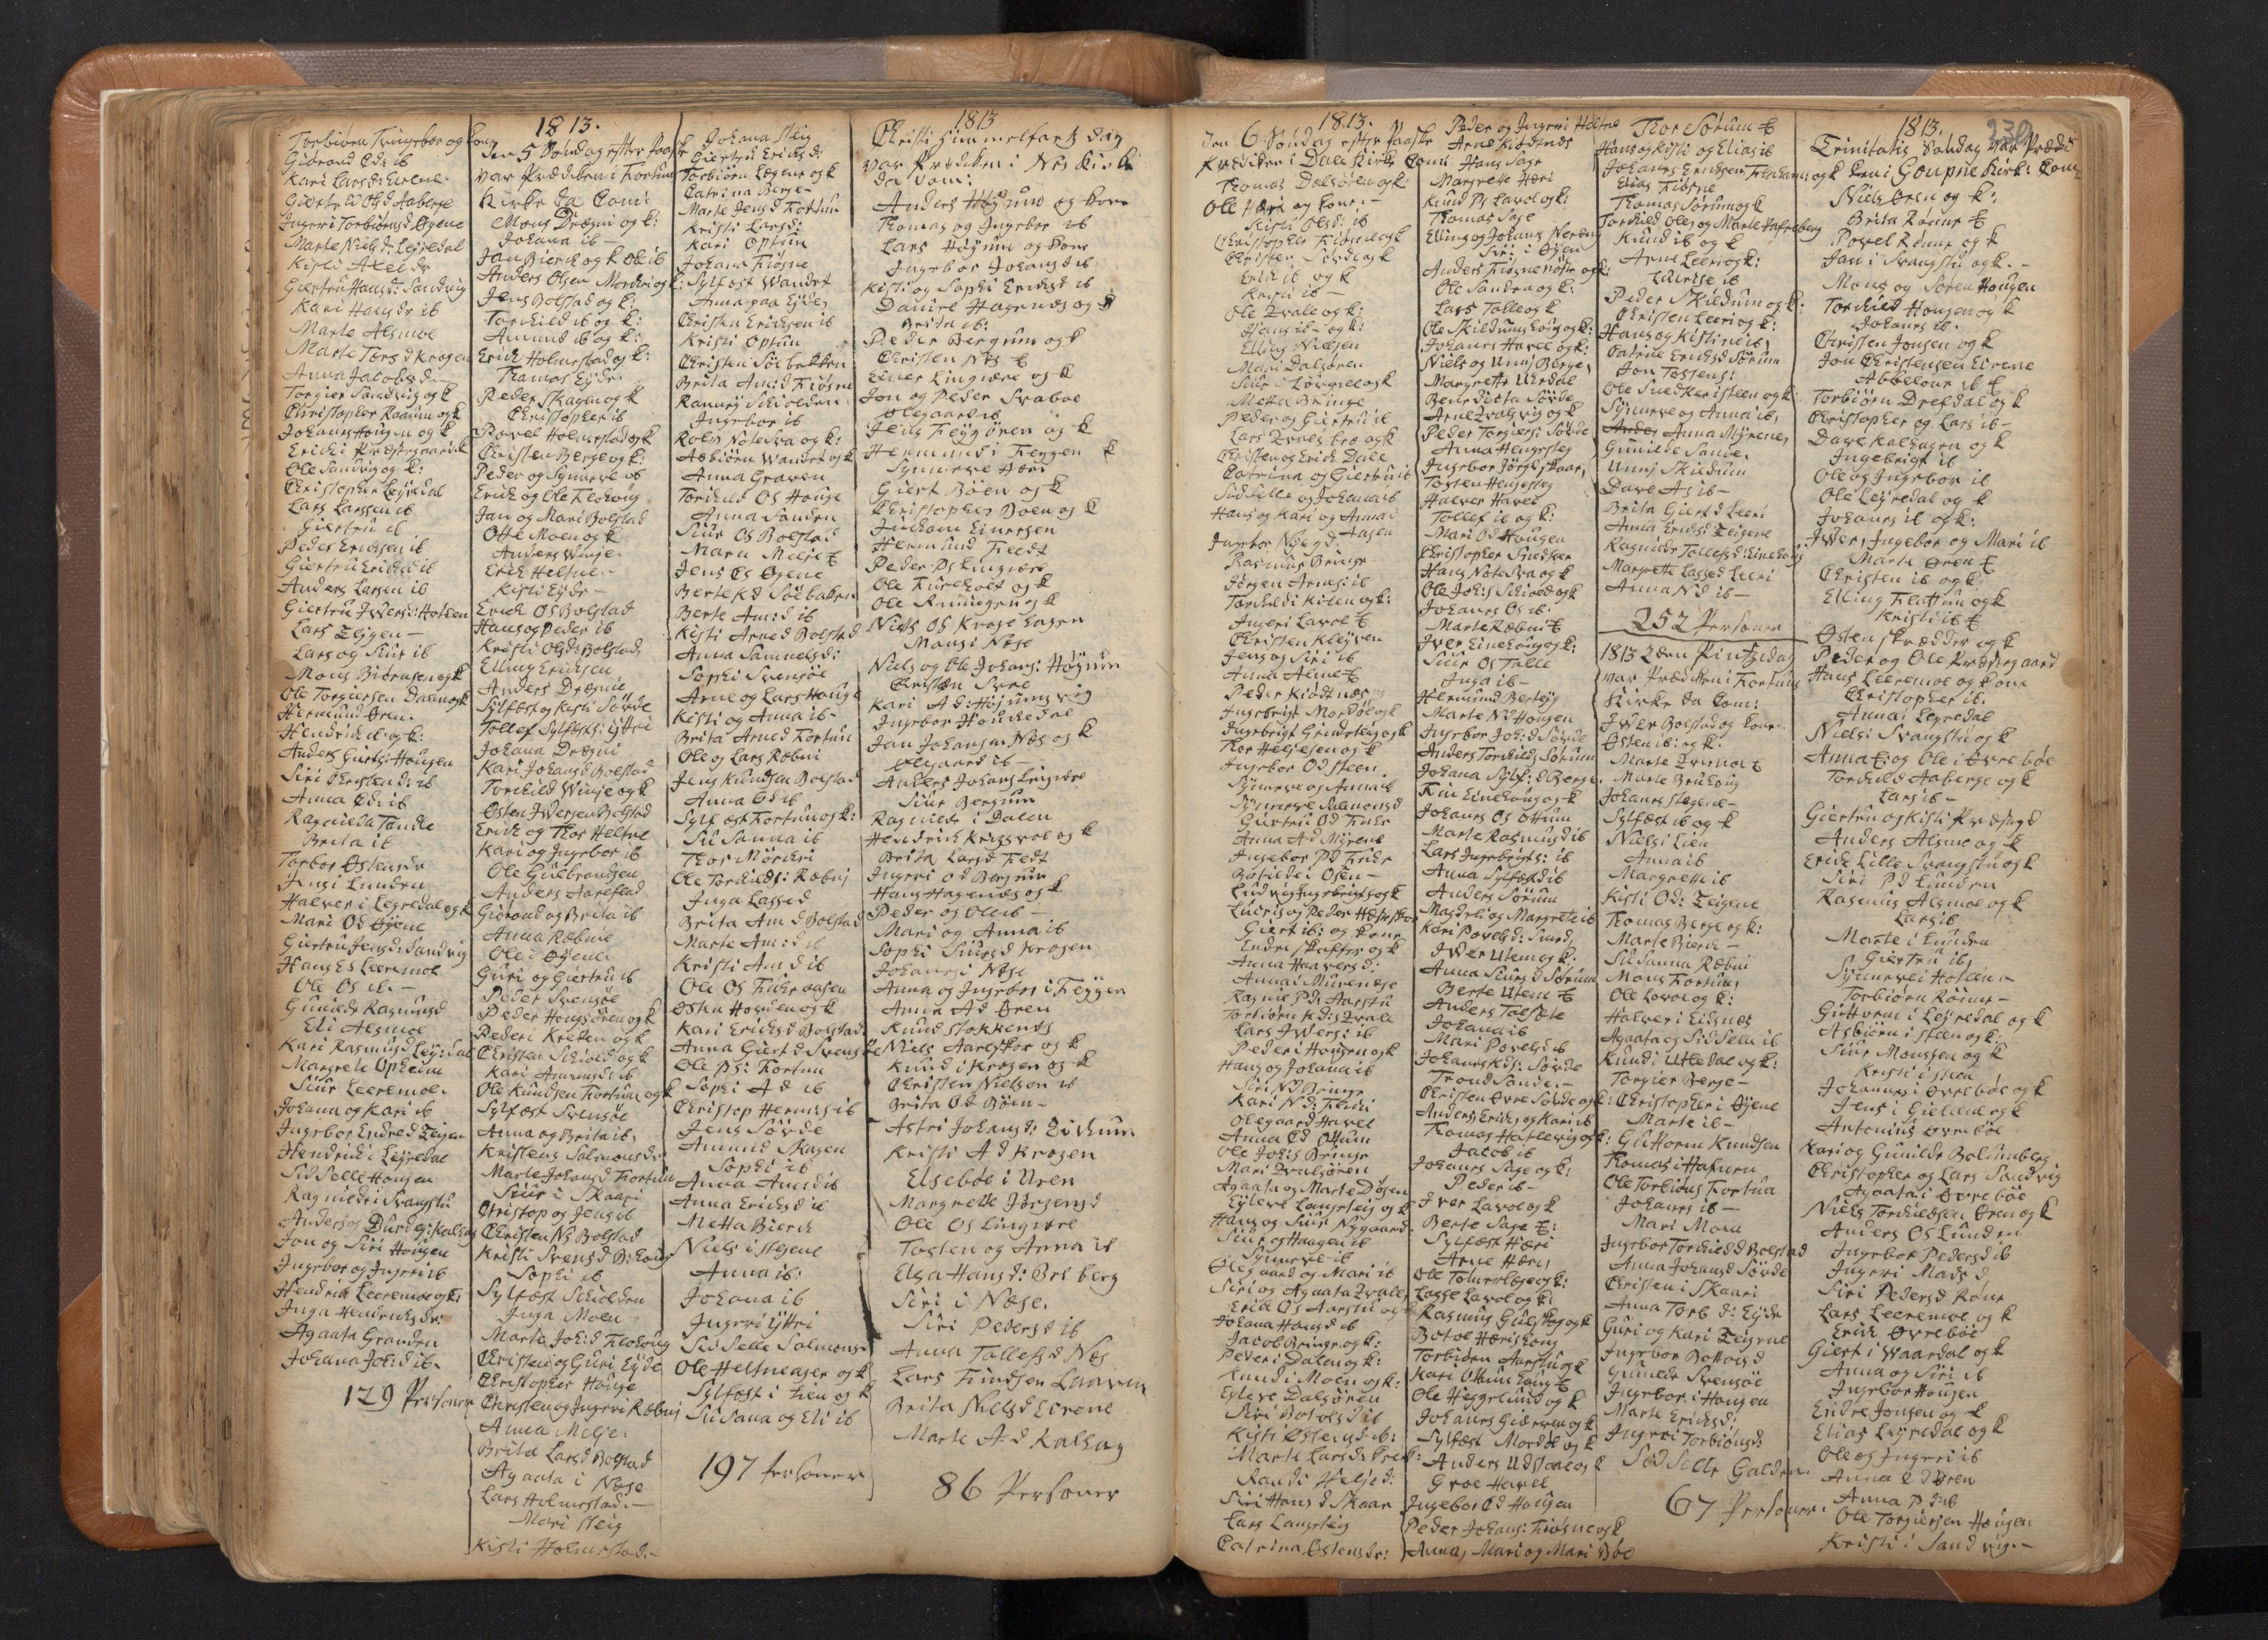 Torbiørn Tvingebor og kone
Giærand Ed: ib
Kari Larsd: Eirene
Giertru Olsd Aaberge
Ingerri Torbiørnsd Øyene
Marte Nielsd: Leyredal
Kisti Axeldr
Giertru Hansd: Sandvig
Kari Hansdr ib
Marte Alsmoe
Marte Torsd Krogen
Anna Jacobsd.
Torgier Sandvig og k
Christopher Raaum og k
Johans Hougen og k
Erich i Præstegaarden
Ole Sandvig og k:
Christopher Leyredal
Lars Larssen ib
Giertru ib
Peder Erichsen ib
Giertru Erichsd ib
Anders Larsen ib
Giertru Iversd: Holsen
Lars Zeigen –
Lars og Siur ib
Mons Biørnsen og k
Ole Torgiersen Dalen og k
Hermund Øren
Hendrich ib og k:
Anders Giertss: Hougen
Siri Christensd: ib
Anna Ed: ib
Ragnilda Tande
Brita ib
Torbor Østensdr
Jens i Lunden
Halver i Leyredal og k
Mari Od Øyene
Giertru Jensd: Sandvig
Hans Es Leeremoe
Ole Os ib. –
Gunilde Rasmusd
Eli Alsmoe
Kari Rasmusd Leyredal
Margrete Opheim
Siur Leeremoe
Johana og Kari ib
Ingebor Endred Zeigen
Hendrich i Leyredal
Sidselle Hougen
Ragnilde i Svangstu
Jon og Siri Hougen
Ingebor og Ingerri ib
Hendrich Leeremoe og k:
Inga Hendrichsdr:
Agaata Granden
Johana Joh: d ib.
129 Personer
1813.
den 5 Søndag efter Paaske
var Prædiken i Fortun
Kirke da Com:
Mons Drægni og k:
Johana ib –
Jan Bierch og k Ole ib
Anders Olsen Mordni og k:
Jens Bolstad og k:
Torchild ib og k:
Amund ib og k:
Erich Holmestad og k:
Thomas Eyde
Peder Skagen og k
Christopher ib
Povel Holmestad og k
Christen Berge og k:
Peder og Synneve ib
Erich og Ole Flohoug
Jan og Mari Bolstad
Otte Moen og k
Anders Winje
Erich Heltne –
Kisti Eyde –
Erich Os Bolstad
Hans og Peder ib
Kristi Olsd: Bolstad
Elling Erichsen
Anders Drægnie
Sylfæst og Kisti Søvde
Tollef Sylfæsts: Yttri
Johana Drægni
Kari Johansd Bolstad
Torchild Winje og k
Østen Iversen Bolstad
Erich og Thor Heltne
Kari og Ingebor ib
Ole Gulbrandsen
Anders Aarestad
Gierand og Brita ib
Anna Ræbnie
Ole i Øyene
Guri og Giertru ib
Peder Svensøe
Peder Hougsøren og k
Peder i Kreken og k
Christen Schiold og k
Kari Amundsd ib
Ole Knudsen Fortun og k
Sylfæst Svensøe
Anna og Brita ib,
Kristens Salmonsdr
Marte Johansd Fortun
Siur i Skaari
Christop og Jens ib
Christen Ns Bolstad
Kristi Svensd B: houg
Sophi ib
Sylfæst Schiolden
Inga Moen
Marte Joh: d Flohoug
Christen og Guri Eyde
Christopher Houge
Christen og Ingerri Ræbni
Anna Melje
Brita Larsd Bolstad
Agaata i Næse
Lars Holmestad. –
Mari Steig
Kisti Holmestad. –
Johana Steig
Giertru Erichsd:
Torbiørn Lægene og k
Catrina Berge –
Marte Jensd Fortun
Kristi Larsd:
Kari Optun
Johans Fiøsne
Sylfæst Wandet
Anna paa Eyde,
Christen Erichsen ib
Kristi Optun
Christen Søebakken
Brita Am:d Fiøsne
Ranney Schiolden
Ingebor ib
Kolb: Notesva og k:
Asbiørn Wandet og k
Anna Graven
Torchild Os Houge
Anna Sanden
Siur Os Bolstad
Maren Melje
Jens Es Øyene
Berte Kd Søebaken
Berte Am:d ib
Kisti Arned Bolstad
Anna Samuelsd:
Sophi Svensøe
Arne og Lars Houge
Kisti og Anna ib –
Brita Arned Fortun
Ole og Lars Ræbni
Jens Knudsen Bolstad
Anna Ed ib
Sylfæst Fortun og k:
Susanna ib
Thor Mørchri
Ole Torchilds: Ræbni
Inga Lassed
Brita Am d Bolstad
Marte Am: d ib
Kristi Am d ib
Ole Os Fuhraasen
Østen Hovden og k
Kari Erichsd Bolstad
Anna Giert d Svensøe
Ole Ps: Fortun
Sophi A d ib
Christop Herms: ib
Jens Søvde
Amund Skagen
Sophi ib
Anna Amsd ib
Anna Erichsd ib
Metta Bierch
Niels i Stejene
Anna ib:
Johana ib
Ingerri Yttri
Sidselle Salmonsd
Ole Heltneager og k
Sylfæst i Lien og k
Susana og Eli ib
197 Personer
1813
Christi Himmelfarts dag
var Prædiken i Næs Kirke
da Com:
Anders Høyum og kone
Thomas og Ingebor ib
Lars Høyum og kone
Ingebor Johansd ib
Kisti og Sophi Erichsd ib
Daniel Hagenæs og k
Brita ib:
Peder Bergum og k
Christen Næs
Einer Lingvære og k
Jon og Peder Svaboe
Olegaard ib
Jens Fleyøren og k
Hermund i Feygen k
Synneve Høen
Giert Bøen og k
Christopher Boen og k
Jucham Einersen
Hermund Feedt
Peder Ps Lingvære
Ole Kirchevold og k
Ole Rinnigen og k
Niels Os Krogehagen
Mons i Næse
Niels og Ole Johans: Høyum
Christen Svee
Kari A d: Høyumsvig
Ingebor Houchedal
Jan Johansen Næs og k
Olegaard ib –
Anders Johans Lingvære
Siur Bergum
Ragnilde i Dalen
Hendrich Krigsvol og k
Brita Larsd Fedt
Ingerri Od Bergum
Hans Hagenæs og k
Peder og Ole ib –
Mari og Anna ib
Sophi Siursd Krogen
Johans i Næse
Anna og Ingebor i Feygen
Anna A d Øren
Knud Stokkenæs
Niels Aarlskor og k
Knud i Krogen og k
Christen Nielsen ib
Brita O d Bøen –
Astri Johansd: Eichum
Kristi A d Krogen
Elsebøe i Uren
Margrethe Jørgensd
Ole Os Lingvære
Tosten og Anna ib
Elsa Hansd: Berberg
Siri i Næse.
Siri Pedersd ib
Anna Tollefsd Næs
Lars Knudsen Laaven
Brita Nielsd Eirene
Marte A d Kalhag
86 Personer
1813.
den 6 Søndag efter Paaske
Prædiken i Dale Kirke Com:
Thomas Dalsøren og k:
Ole Hæri og kone. –
Kisti Olsd: ib
Christopher Fiøsne og k
Christen Søvde og k
Erich ib og k
Kisti ib –
Ole Qvale og k:
Hans ib – og k:
Elling Nielsen
Mari Dalsøren
Metta Bringe
Peder og Giertru ib
Lars Qvalsbro og k
Christen og Erich Dale
Catrina og Giertru ib
Sidselle og Johana ib
Hans og Kari og Anna i
Aasen
Rasmus Bringe
Jørgen Arnes: ib
Torchild i Kilen og k:
Ingeri Lavol
Christen Kleyven
Jens og Siri ib
Anna Alme
Peder Kiødtnæs
Ingebrigt Mordøl og k
Ingebrigt Grindsteig og k
Thor Heljesen og k
Ingebor Od Steen
Synneve og Anna ib
Synneve Salmonsd
Giertru Od Fuhr
Anna Ad Myrene
Ingebor Pd Fuhr
Botilde i Osen –
Ludvig Ingebrigts og k
Giert ib: og kone
Endre Skaftes og k
Anna Haaversd:
Anna i Murenæse
Ragnie Pd: Aarstu
Torbiørn Kds: Qvale
Lars Ivers: ib
Peder i Hougen og k
Hans og Johana ib
Siri Nd Bringe
Kari Nd: Flahi
Olegaard Havel
Anna Ed Ottum
Ole Joh:s Bringe
Mari Qvalsøren
Agaata og Marte Døsen
Eyleve Langesteig og k
Hans og Siur Nygaard
Siur og Haagen ib
Synneve ib
Olegaard og Mari ib
Siri og Agaata Qvale
Erich Os Aarstu og k
Johana Hansd ib
Jacob Bringe og k:
Peder i Dalen og k:
Knud i Moen og k:
Eyleve Dalsøren
Siri Botolsd ib
Kisti Østensd: ib:
Marte Larsdr Brek:
Randi Heljed:
Siri Hans d Skaar
Lars Langesteig
Catrina Østensdr:
Peder og Ingerri Heltne
Arne Kiødtnæs
Hans Sage
Margrette Hæri
Knud Ps Lavol og k:
Thomas Sage
Elling og Johans Nereng
Siri i Øyen
Anders Fiøsnenøste og k:
Ole Sanden og k:
Lars Talle og k
Ole Skildumshoug og k:
Johans Havel og k:
Niels og Unni Berge,
Margrette Uhrdal
Benedicta Søvde
Arne Qvalsvig og k
Peder Torgiers: Søvde,
Anna Hengesteg
Ingebor Jørgs: Skaar,
Tosten Hengesteg
Halver Havel
Tollef ib og k:
Mari Od Hougen
Christopher Snedker
Hans Notesva og k
Ole Joh:s Schiold og k
Johans Os ib.
Marte Ræbni
Iver Einehoug og k:
Siur Os Talle
Inga ib –
Hermund Berteig
Marte Nd Hougen
Ingebor Joh: d Søvde
Anders Torchilds Sørum
Johana Sylf: d Berge.
Knu Einehoug og k
Johans Os Ottum
Marte Rasmusd ib
Lars Ingebrigts: ib
Anna Sylfæsd ib
Anders Sørum
Magdeli og Margrete ib
Kari Povelsd: Snerd,
Iver Utem og k:
Anna Siursd Sørum
Berte Utem
Anders Talsete
Johana ib
Mari Povelsd ib
Johans Kds: Søvde
Trond Sande. –
Christen Øvre Søvde og k:
Anders Erichs og Kari ib
Thomas Hatlevig og k:
Jacob ib
Johans Sage og k:
Peder ib –
Iver Lavol og k
Berte Sage
Sylfæst Hæri
Arne Hæri
Lasse Lavol og k:
Rasmus Gulschog og k
Botol Hærishoug
Torbiørn Aarstu og k
Kari Ottumshoug
Ole Heggelund og k
Johans Gierren og k
Sylfæst Mordøl og k
Anders Udstaal og k
Groe Havel
Ingebor Ed Hougen
Peder Johans: Fiøsne og k
Anna, Mari og Mari Bøe
Thor Sørum
Hans og Kisti og Elias ib
Johans Erichsen Fiøshoug og k
Elias Fiøsne
Thomas Sørum og k
Torchild Oles og Marte Hafreberg
Knud ib og k
Arne Leeri og k:
Lucritse ib
Peder Skildum og k:
Christen Leeri og k:
Hans og Kistine ib,
Catrine Erichsd Sørum
Jon Tostens:
Ole Sned Kersteen og k
Synneve og Anna ib,
Anna Myrene,
Gunilde Sande.
Unni Skildum
Dave As ib –
Brita Giertd Leeri
Anna Erichsd Zeigene
Ragnilde Tollefsd: Einehoug
Margrette Lassed Leeri
Anna Nd ib –
252 Personer
1813 2den Pintzedag
var Prædiken i Fortun
Kirke da Com:
Iver Bolstad og kone
Østen ib: og k:
Marte Qværna
Marte Bruhoug
Johans Stegene –
Sylfæst ib og k
Niels i Lien
Anna ib
Margrette ib
Kisti Od: Zeigene
Thomas Berge og k:
Marte Bierch –
Susanna Ræbni
Mons Fortun,
Ole Lavol og k:
Halver i Eidsnæs
Agaata og Sidselle ib
Knud i Utledal og k:
Torgier Berge –
Christopher i Øyene
Marte ib –
Guttorm Knudsen
Thomas i Hafnen
Ole Torbiøns Fortun
Johans ib –
Mari Moen
Ingebor Torchildsd Bolstad
Anna Johansd Søvde
Christen i Skaari
Anna Torb d: Eyde
Guri og Kari Zeigene
Ingebor Bottolsd
Gunilde Svensøe
Ingebor i Hougen
Marte Erichsd:
Ingerri Torbiønsd:
Sidselle Galden
67 Personer.
1813.
239
Trinitatis Søndag var Prædi
ken i Goupne Kirke: Com:
Niels Øren og k:
Brita Rønne
Povel Rønne og k
Jan i Svangstu og k. –
Mons og Søren Hougen
Torchild Hougen og k
Johans ib.
Christen Jonsen og k
Jon Christensen Eirene
Abbelone ib
Torbiørn Drefdal og k
Christopher og Lars ib –
Dave Kalhagen og k
Ingebrigt ib
Ole og Ingebor ib
Ole Leyredal og k
Johans ib og k:
Iver, Ingebor og Mari ib
Marte Øren
Christen ib og k:
Elling Flattun og k
Kristi ib
Østen Skredder og k
Peder og Ole Præstegaard
Hans Leeremoe og kone
Christopher ib.
Anna i Leyredal
Niels i Svangstu og k
Anna og Ole i Øvrebøe
Torchild Aaberge og k
Lars ib –
Giertru og Kisti Prestegd
Anders Alsmo og k
Erich Lille Svangstu og k
Siri P d Lunden
Rasmus Alsmoe og k
Lars ib
Marte i Lunden
Giertru ib,
Synneve i Holsen –
Torbiørn Rønne –
Guttorm i Leyredal og k
Asbiørn i Steen og k:
Siur Monssen og k
Kristi i Steen
Johannes i Øvrebøe og k
Jens i Gielene og k
Antonius Øvrebøe
Kari og Gunilde Bolumberg
Christopher og Lars Sandvig
Agaata i Øvrebøe
Niels Torchildsen Øren og k
Anders Os Lunden
Ingebor Pedersd ib
Ingerri Madsd
Siri Pedersd Rønne
Lars Leeremoe og k
Erich Øvrebøe
Giert i Waardal og k
Anna og Siri ib
Ingebor Hougen
Endre Jonsen og k
Elias Leyredal og k
Ole og Ingerri ib
Anna E d Øren
Anna P d ib
Ole Torgiersen Hougen
Kristi i Sandvig. –